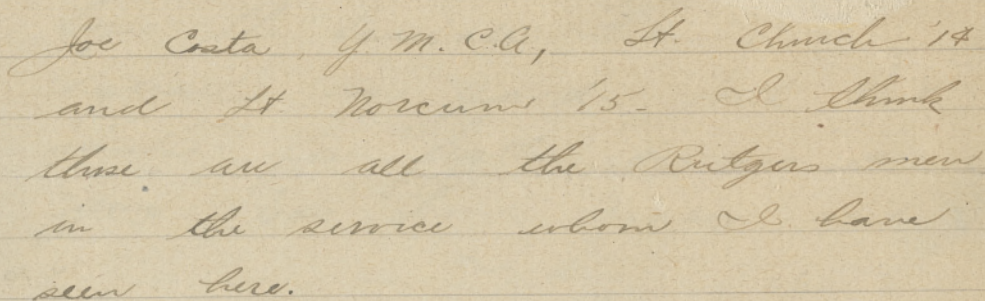 Joe Costa, Y.M.C.A., Lt. Church '14
and Lt Norcum '15. I think
those are all the Rutgers men
in the service whom I have
seen here.